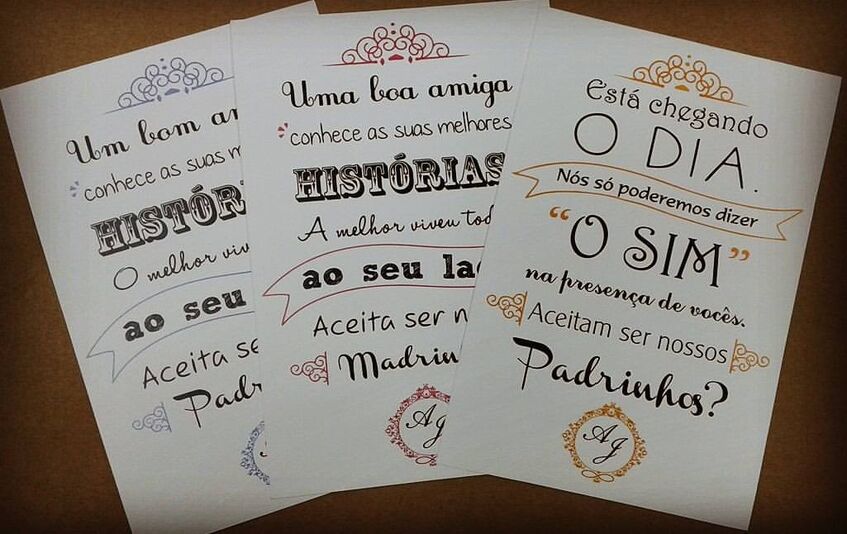 Um bom
conhece as suas
HISTÓR
O melhor
ao seu
Aceita
Uma boa amiga
conhece as suas melhores
HISTÓRIAS
A melhor viveu
ao seu
Aceita ser
Está chegando
O DIA.
Nós só poderemos dizer
“O SIM”
na presença de vocês.
Aceitam ser nossos
Padrinhos?
AJ
AJ